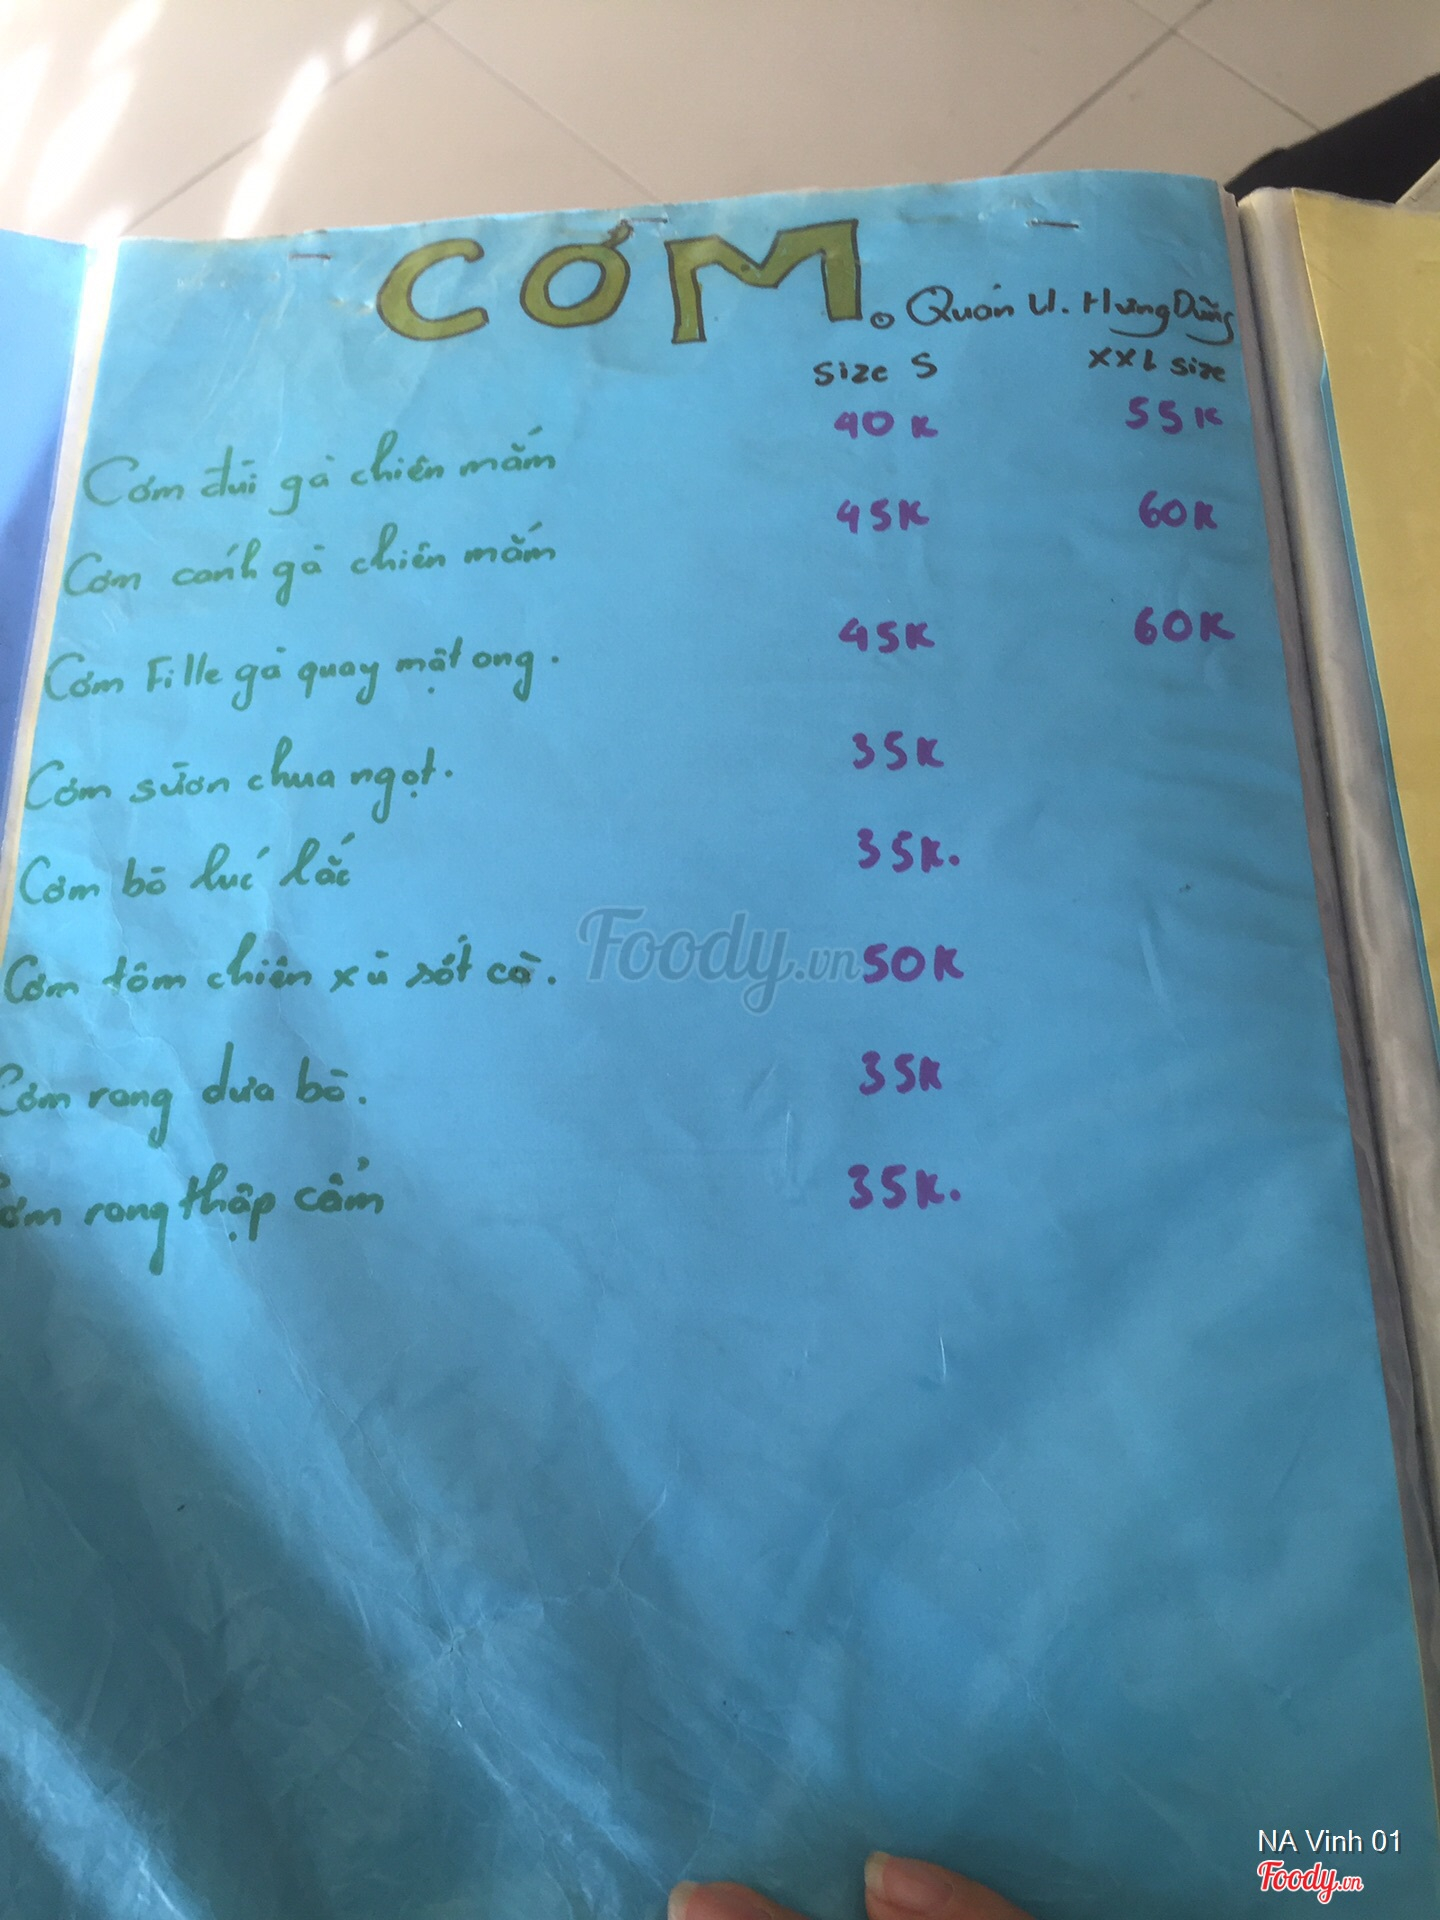 CƠM. Quán U. Hưng Dũng
Size S XXL size
Cơm đùi gà chiên mắm 40K 55K
Cơm cánh gà chiên mắm 45K 60K
Cơm Fille gà quay mật ong. 45K 60K
Cơm sườn chua ngọt. 35K
Cơm bò lúc lắc 35K.
Cơm tôm chiên xù sốt cà. 50K
Cơm rang dưa bò. 35K
Cơm rang thập cẩm 35K.
Foody.vn
NA Vinh 01
Foody.vn